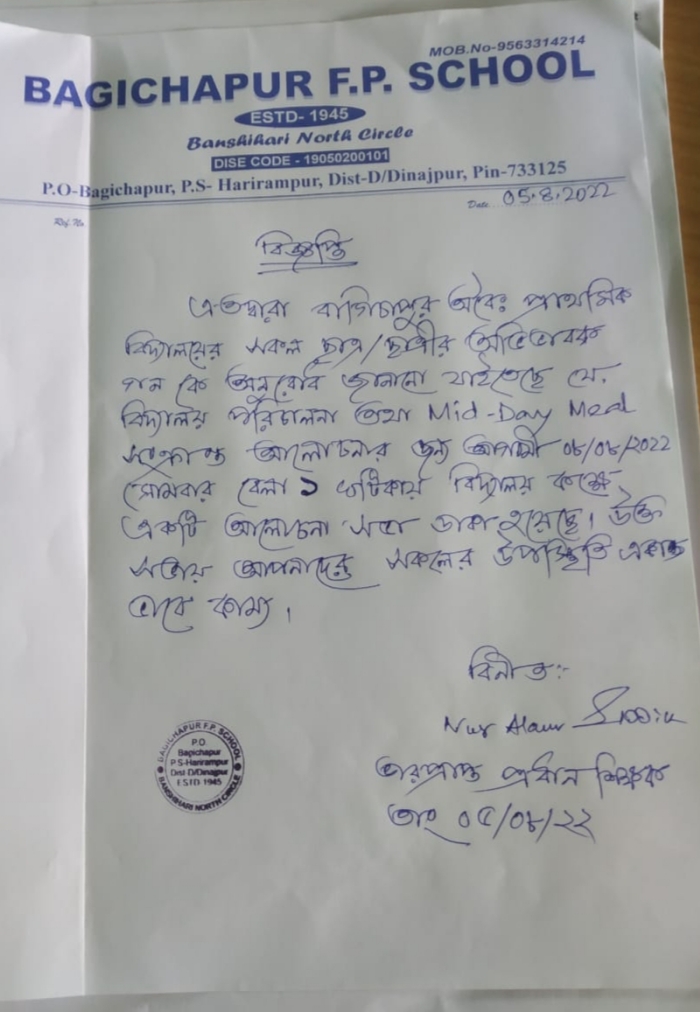 MOB.No-9563314214
BAGICHAPUR F.P. SCHOOL
ESTD- 1945
Banshihari North Circle
DISE CODE - 19050200101
P.O-Bagichapur, P.S- Harirampur, Dist-D/Dinajpur, Pin-733125
Ref. No.
Date 05.8.2022
বিজ্ঞপ্তি
এতদ্বারা বাগিচাপুর অবৈঃ প্রাথমিক
বিদ্যালয়ের সকল ছাত্র/ছাত্রীর অভিভাবক
গন কে অনুরোধ জানানো যাইতেছে যে,
বিদ্যালয় পরিচালনা তথা Mid-Day Meal
সংক্রান্ত আলোচনার জন্য আগামী ০৮/০৮/2022
সোমবার বেলা ১ ঘটিকায় বিদ্যালয় কক্ষে
একটি আলোচনা সভা ডাকা হয়েছে। উক্ত
সভায় আপনাদের সকলের উপস্থিতি একান্ত
ভাবে কাম্য।
বিনীত:-
Nur Alam
ভারপ্রাপ্ত প্রধান শিক্ষক
তাং ০৫/০৮/২২
BAGICHAPUR F.P. SCHOOL
P.O
Bagichapur
P.S-Harirampur
Dist D/Dinajpur
ESTD 1945
BANSHIHARI NORTH CIRCLE